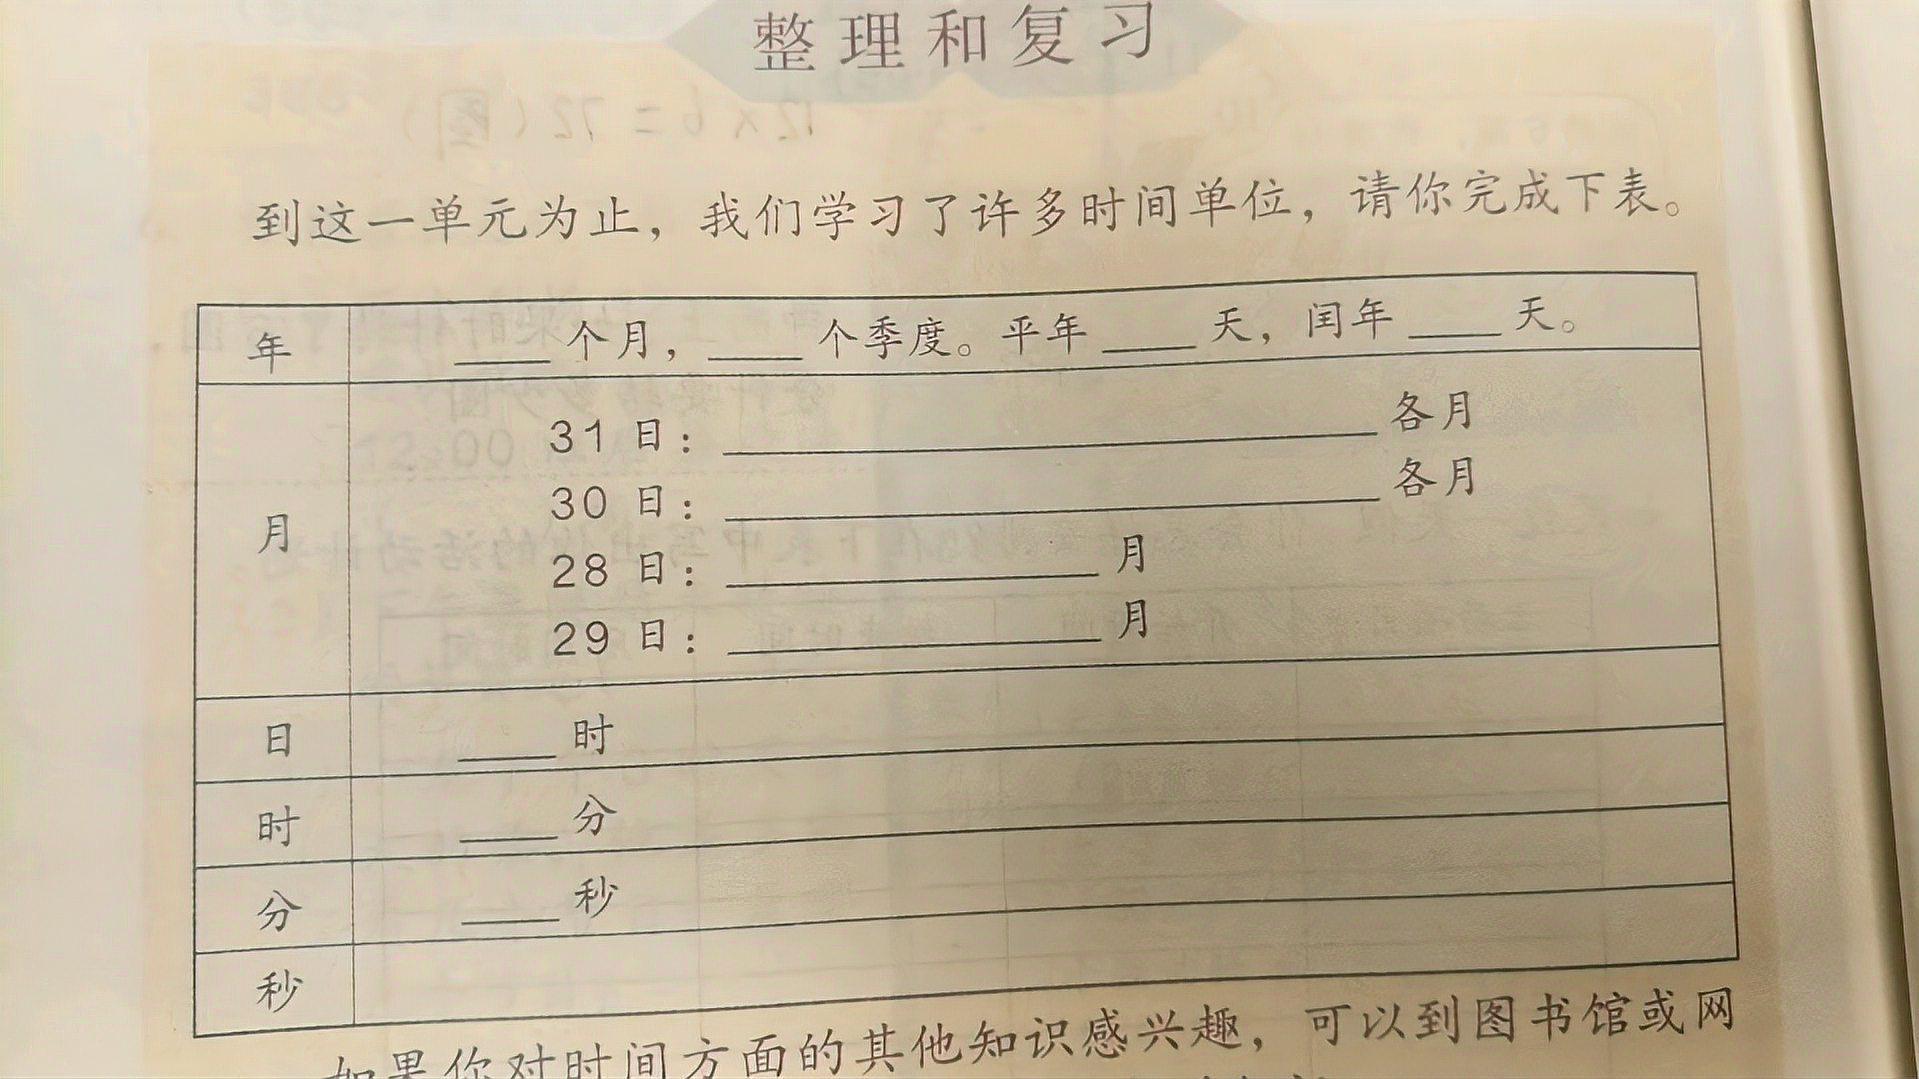 整理和复习
到这一单元为止，我们学习了许多时间单位，请你完成下表。
年 ____ 个月，____ 个季度。平年 ____ 天，闰年 ____ 天。
月
31 日：____ 各月
30 日：____ 各月
28 日：____ 月
29 日：____ 月
日 ____ 时
时 ____ 分
分 ____ 秒
秒
如果你对时间方面的其他知识感兴趣，可以到图书馆或网